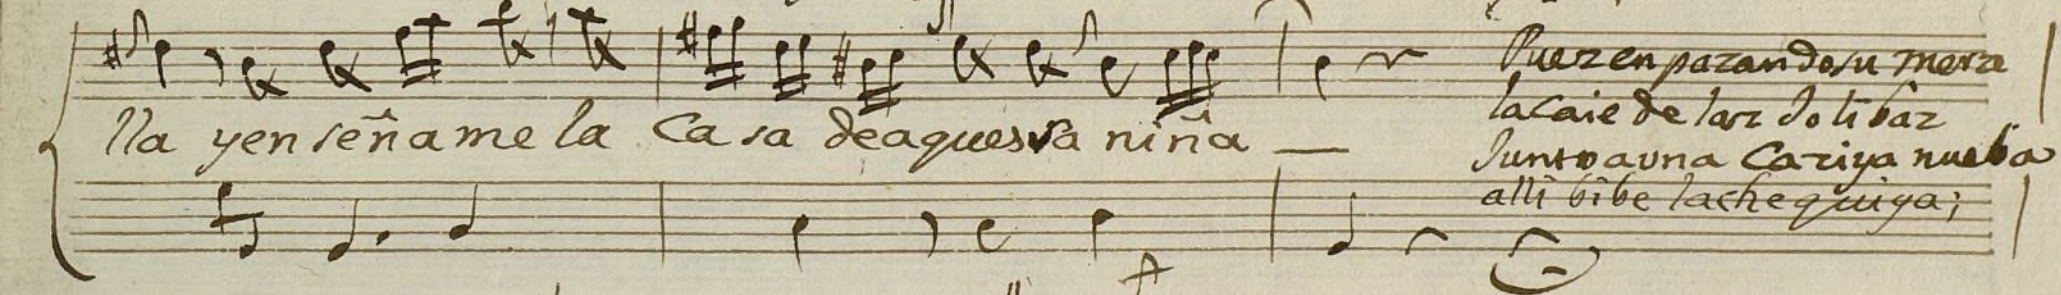 lla yenseñame la Casa deaquesta niña
Puez en pazando su merze
la Caie de laz Jolibaz
Junto a una Caziya nueba
alli bibe la chequiya;